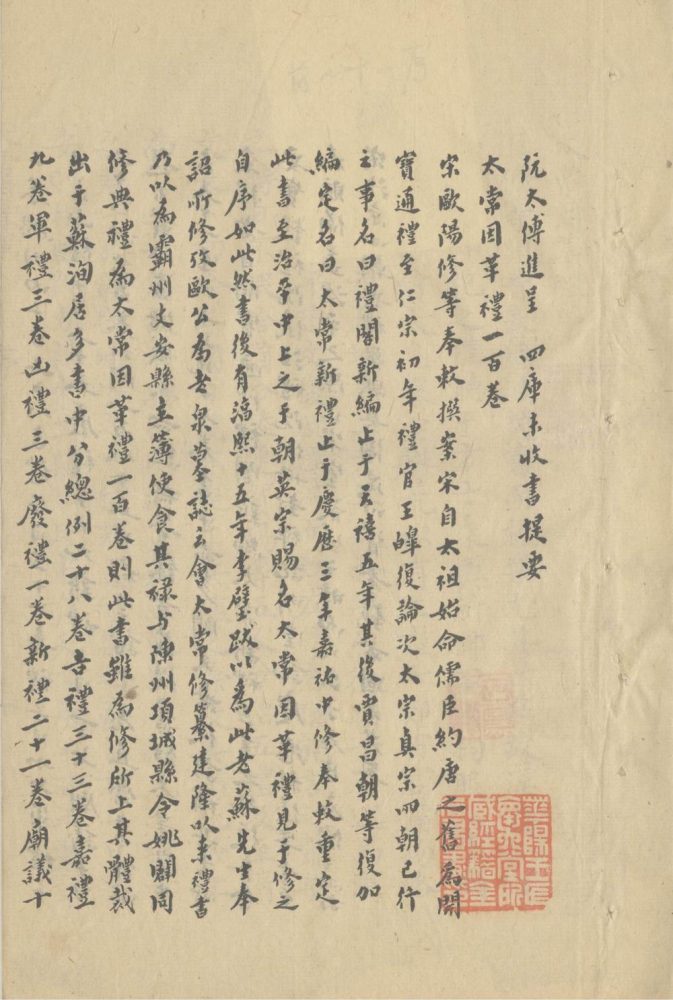 阮太傅進呈　四庫未收書提要
太常因革禮一百卷
宋歐陽修等奉敕撰案宋自太祖始命儒臣約唐之舊為開
寶通禮至仁宗初年禮官王皥復論次太宗真宗兩朝已行
之事名曰禮閣新編上于天禧五年其後賈昌朝等復加
編定名曰太常新禮上于慶歷三年嘉祐中修奉敕重定
此書至治平中上之于朝英宗賜名太常因革禮見于修之
自序如此然書後有淳熙十五年李壁跋以為此老蘇先生奉
詔所修攷歐公為老泉墓誌云會太常修纂建隆以來禮書
乃以為霸州文安縣主簿使食其祿与陳州項城縣令姚闢同
修典禮為太常因革禮一百卷則此書雖為修所上其體裁
出于蘇洵居多書中分總例二十八卷吉禮三十三卷嘉禮
九卷軍禮三卷凶禮三卷廢禮一卷新禮二十一卷廟議十